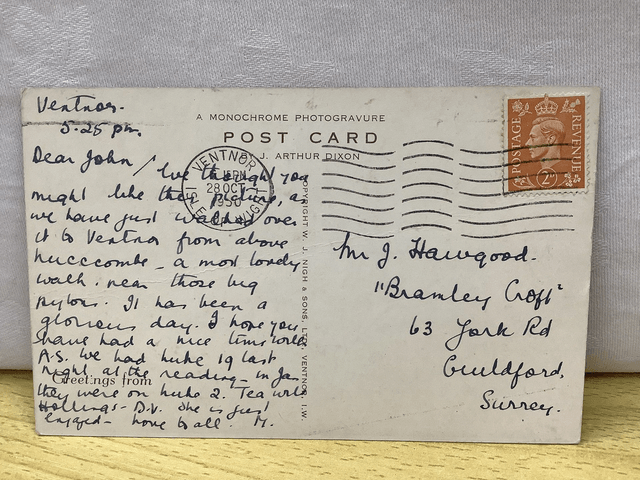 Ventnor.
5.25 pm.
Dear John, / we thought you
might like this picture, as
we have just walked over
it to Ventnor from above
Luccombe - a most lovely
walk. near those big
pylons. It has been a
glorious day. I hope you
have had a nice time with
A.S. We had Luke 19 last
night at the reading - in Jan
they were on Luke 2. Tea with
Hollings - D.V. She is just
engaged - love to all. M.
Greetings from
A MONOCHROME PHOTOGRAVURE
POST CARD
J. ARTHUR DIXON
VENTNOR
28 OCT
1950
ISLE OF WIGHT
COPYRIGHT W. J. NIGH & SONS, LTD., VENTNOR, I.W.
POSTAGE
REVENUE
2D
Mr J. Hawgood.
"Bramley Croft"
63 York Rd
Guildford,
Surrey.